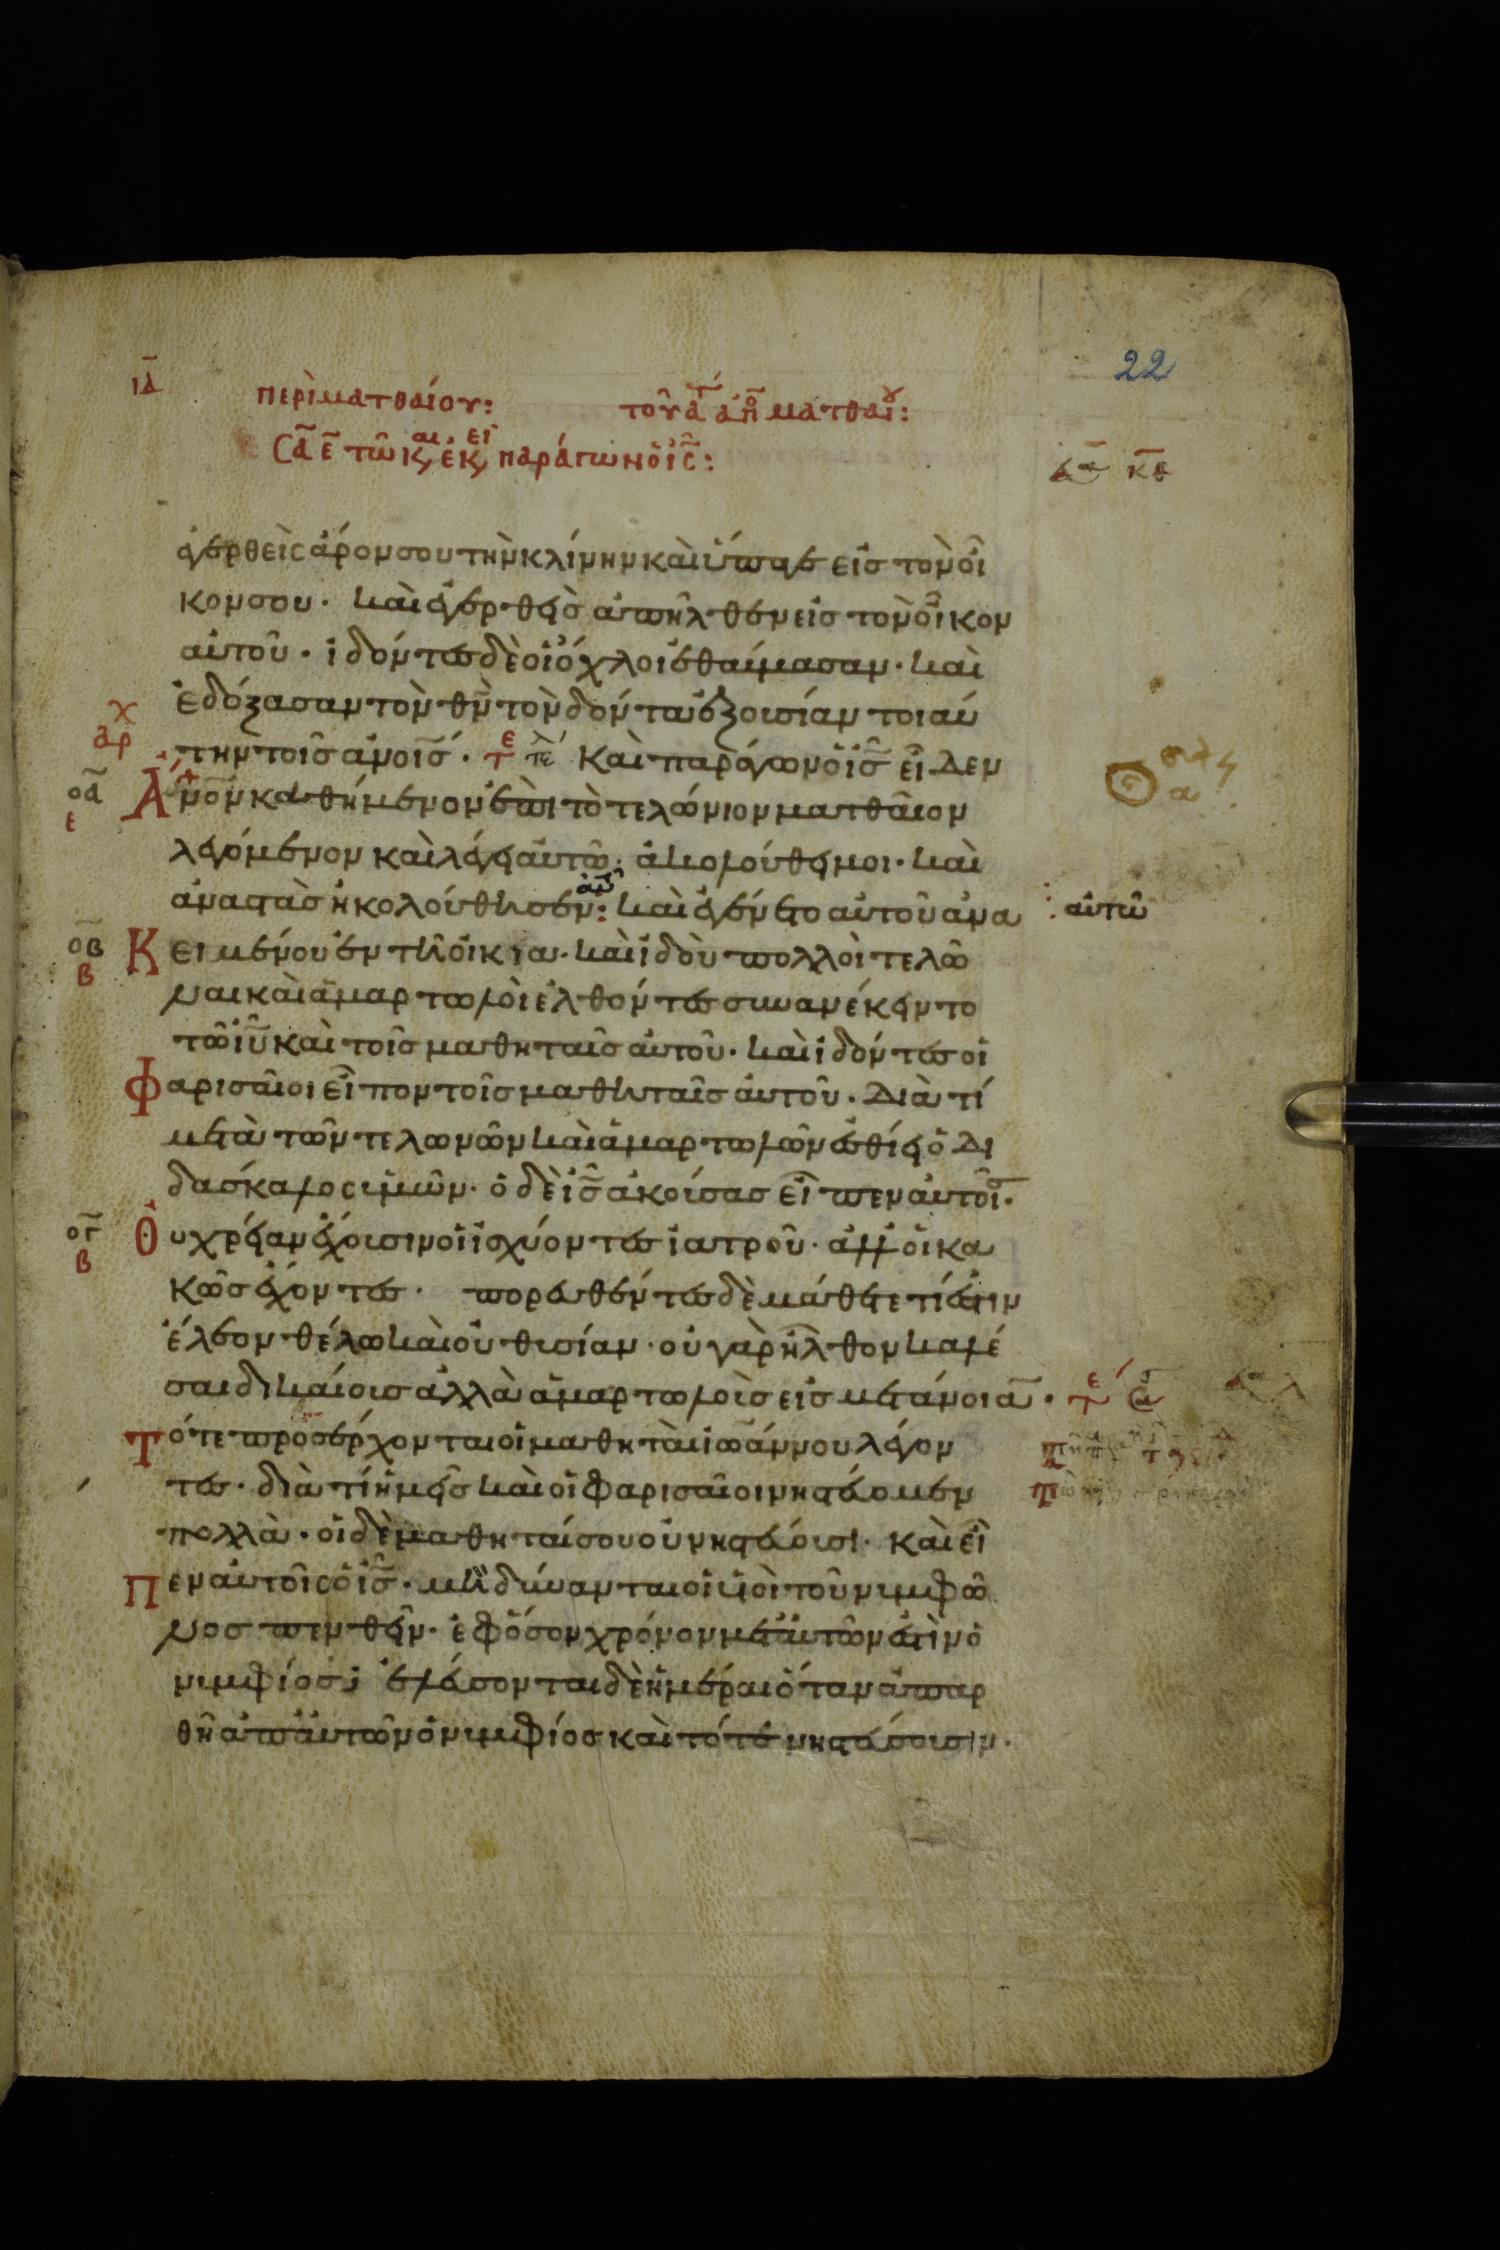 22
ιδ
περὶ ματθαίου: τοῦ ἁγ ἀπ ματθαίου:
Σα ε τῶ κ, ἐκ, παράγων ὁ ις:
ἐγερθεὶς ἆρον σου τὴν κλίνην καὶ ὕπαγε εἰς τὸν οἶ
κον σου· καὶ ἐγερθεὶς ἀπῆλθεν εἰς τὸν οἶκον
αὐτοῦ· ἰδόντες δὲ οἱ ὄχλοι ἐθαύμασαν· καὶ
ἐδόξασαν τὸν θν τὸν δόντα ἐξουσίαν τοιαύ
αρχ
την τοῖς ανοις· τε Καὶ παράγων ὁ ις εἶδεν
οα ε
Ανον καθήμενον ἐπὶ τὸ τελώνιον ματθαῖον
λεγόμενον καὶ λέγει αὐτῶ· ἀκολούθει μοι· καὶ
ἀναστὰς ἠκολούθησεν: καὶ ἐγένετο αὐτοῦ ἀνα
αὐτῶ
οβ β
Κειμένου ἐν τῆ οἰκία· καὶ ἰδοὺ πολλοὶ τελῶ
ναι καὶ ἁμαρτωλοὶ ἐλθόντες συνανέκειντο
τῶ ιυ καὶ τοῖς μαθηταῖς αὐτοῦ· καὶ ἰδόντες οἱ
Φαρισαῖοι εἶπον τοῖς μαθηταῖς αὐτοῦ· Διὰ τί
μετὰ τῶν τελωνῶν καὶ ἁμαρτωλῶν ἐσθίει ὁ δι
δάσκαλος ὑμῶν· ὁ δὲ ις ἀκούσας εἶπεν αὐτοῖς·
ογ β
Οὐ χρείαν ἔχουσιν οἱ ἰσχύοντες ἰατροῦ· ἀλλ οἱ κα
κῶς ἔχοντες· πορευθέντες δὲ μάθετε τί ἐστιν
ἔλεον θέλω καὶ οὐ θυσίαν· οὐ γὰρ ἦλθον καλέ
σαι δικαίους ἀλλὰ ἁμαρτωλοὺς εἰς μετάνοιαν· τε
Τότε προσέρχονται οἱ μαθηταὶ ἰωάννου λέγον
τες· διὰ τί ἡμεῖς καὶ οἱ φαρισαῖοι νηστεύομεν
πολλὰ· οἱ δὲ μαθηταί σου οὐ νηστεύουσι· καὶ εἶ
Πεν αὐτοῖς ὁ ις· μὴ δύνανται οἱ υἱοὶ τοῦ νυμφῶ
νος πενθεῖν· ἐφ ὅσον χρόνον μετ αὐτῶν ἐστὶν ὁ
νυμφίος; ἐλεύσονται δὲ ἡμέραι ὅταν ἀπαρ
θῆ ἀπ αὐτῶν ὁ νυμφίος καὶ τότε νηστεύσουσιν·